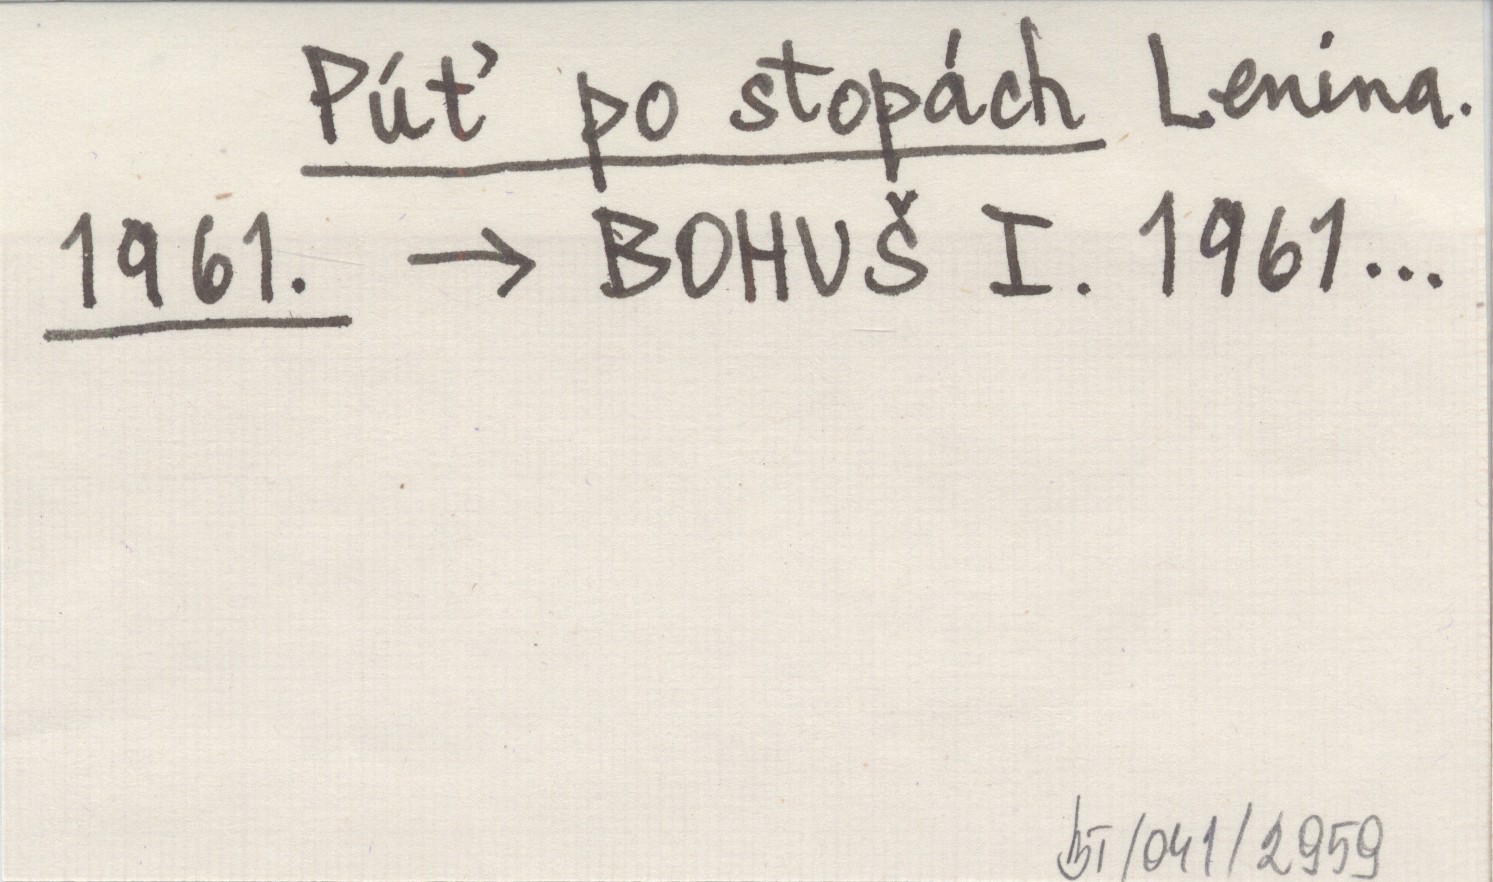 Púť po stopách Lenina.
1961. → BOHUŠ I. 1961...
/041/2959